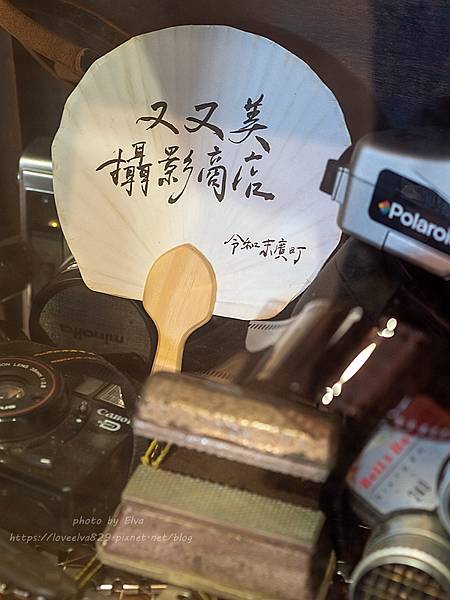 又又美
攝影商店
令和末廣町
Polaroid
minolta
Canon
photo by Elva
https://loveelva829.pixnet.net/blog